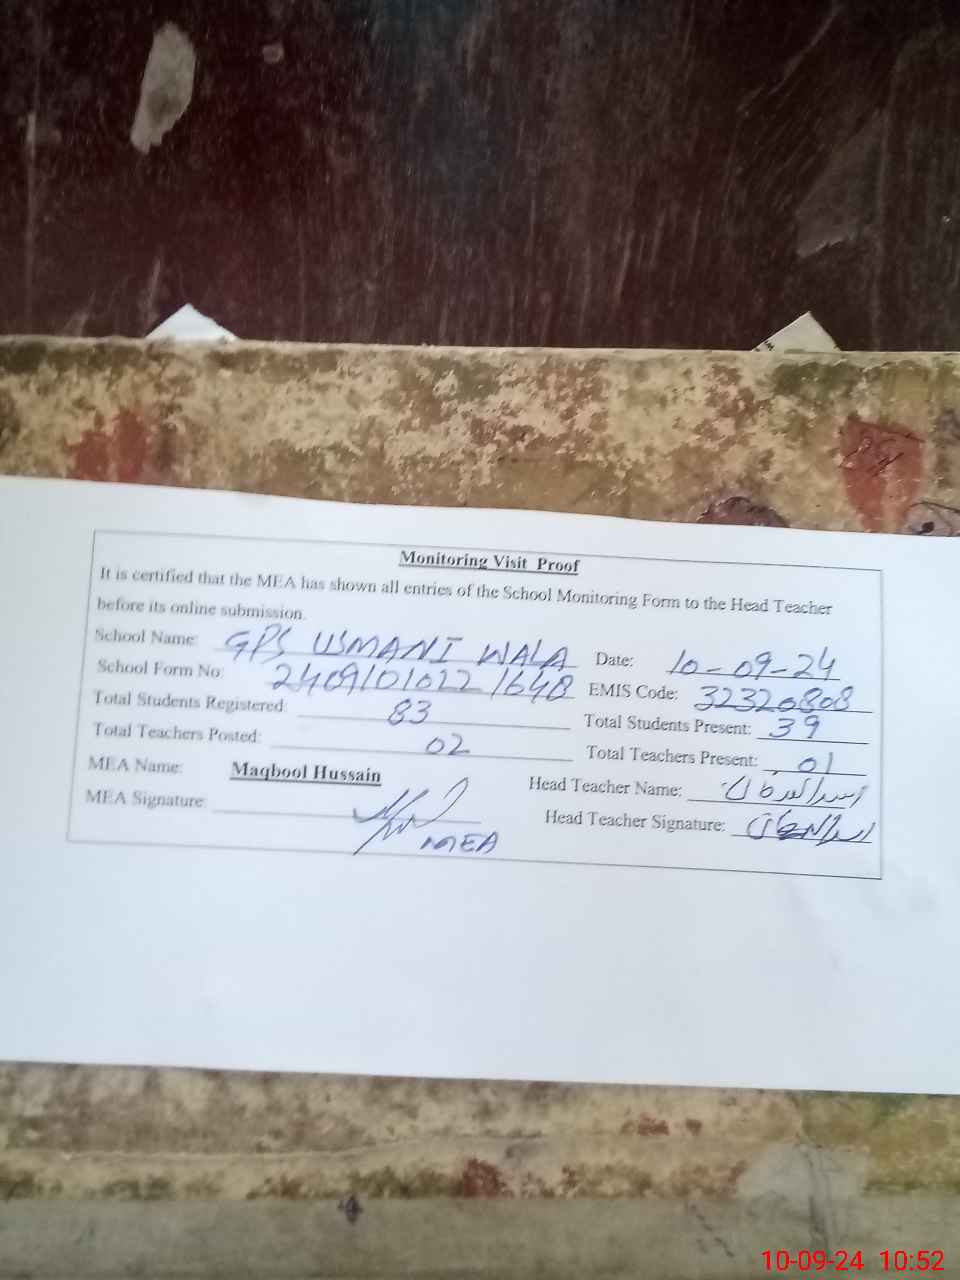 Monitoring Visit Proof
It is certified that the MEA has shown all entries of the School Monitoring Form to the Head Teacher
before its online submission.
School Name: GPS USMANI WALA Date: 10-09-24
School Form No: 24091010221648 EMIS Code: 32320808
Total Students Registered: 83 Total Students Present: 39
Total Teachers Posted: 02 Total Teachers Present: 01
MEA Name: Maqbool Hussain Head Teacher Name:
MEA Signature: MEA Head Teacher Signature:
10-09-24 10:52